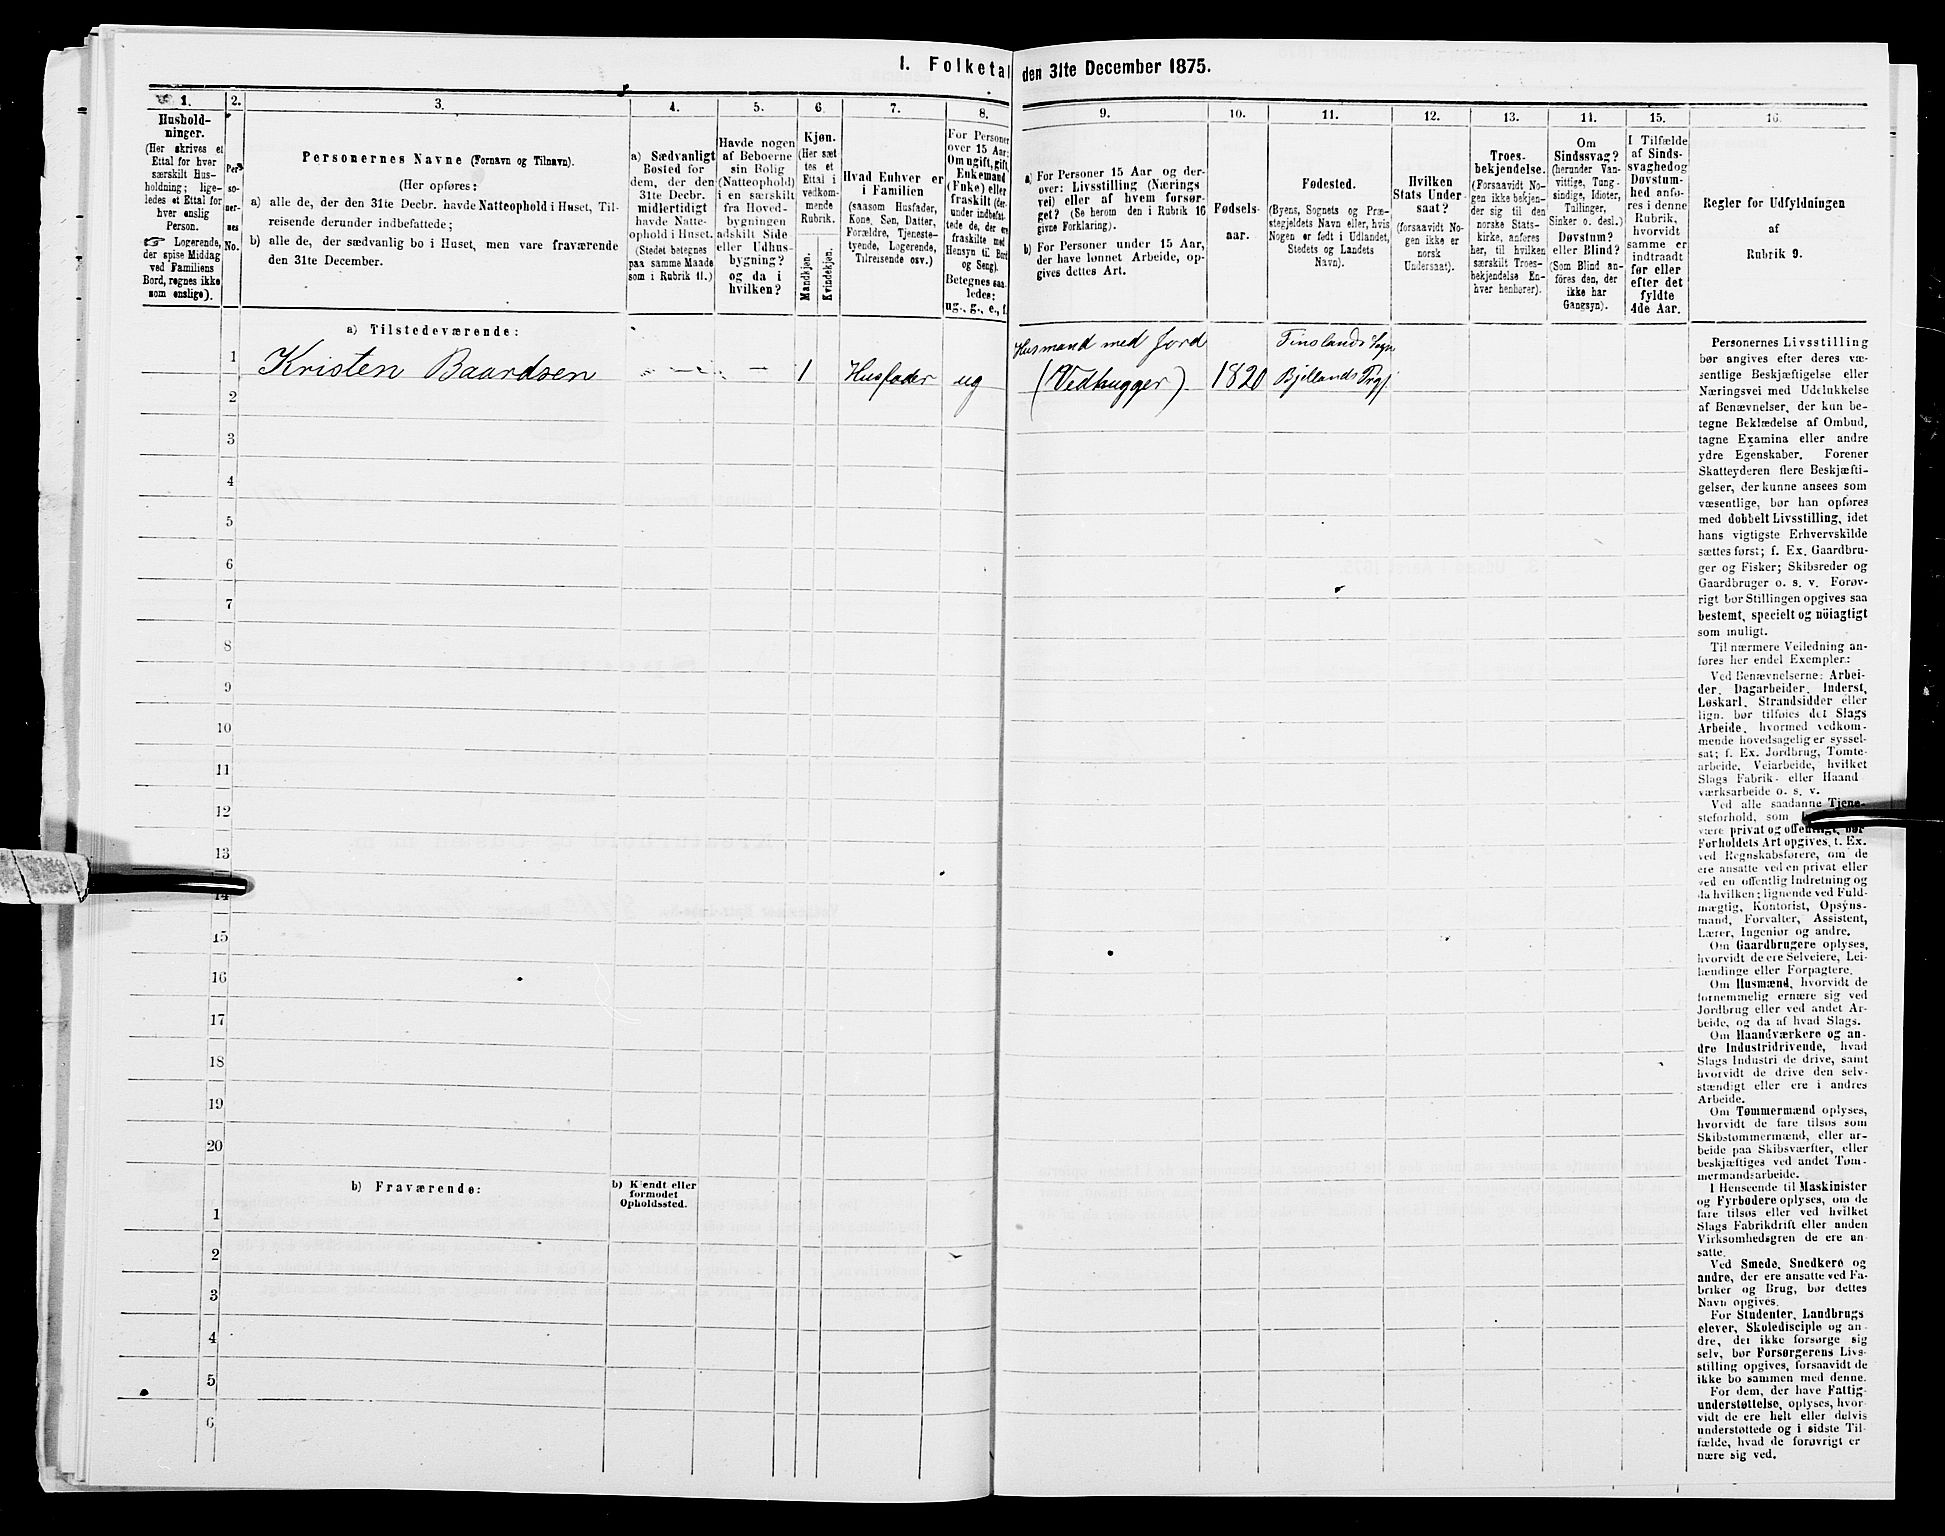 I. Folketal den 31te December 1875.
1.
Hushold-
ninger.
(Her skrives et
Ettal for hver
særskilt Hus-
holdning; lige-
ledes et Ettal for
hver enslig
Person.
☞ Logerende,
der spise Middag
ved Familiens
Bord, regnes ikke
som enslige).
2.
Per-
so-
ner-
nes
No.
3.
Personernes Navne (Fornavn og Tilnavn).
(Her opføres:
a) alle de, der den 31te Decbr. havde Natteophold i Huset, Til-
reisende derunder indbefattede;
b) alle de, der sædvanlig bo i Huset, men vare fraværende
den 31te December.
4.
a) Sædvanligt
Bosted for
dem, der den
31te Decbr.
midlertidigt
havde Natte-
ophold i Huset.
(Stedet betegnes
paa samme Maade
som i Rubrik 11.)
5.
Havde nogen
af Beboerne
sin Bolig
(Natteophold)
i en særskilt
fra Hoved-
bygningen
adskilt Side
eller Udhus-
bygning?
og da i
hvilken?
6
Kjøn.
(Her sæt
tes et
Ettal i
vedkom-
mende
Rubrik.
Mandkjøn.
Kvindekjøn.
7.
Hvad Enhver er
i Familien
(saasom Husfader,
Kone, Søn, Datter,
Forældre, Tjeneste-
tyende, Logerende,
Tilreisende osv.)
8.
For Personer
over 15 Aar:
Om ugift, gift,
Enkemand
(Enke) eller
fraskilt (der-
under indbefat-
tede de, der ere
fraskilte med
Hensyn til Bord
og Seng).
Betegnes saa-
ledes:
ug., g., e., f.
9.
a) For Personer 15 Aar og der-
over: Livsstilling (Nærings
vei) eller af hvem forsør-
get? (Se herom den i Rubrik 16
givne Forklaring).
b) For Personer under 15 Aar,
der have lønnet Arbeide, op-
gives dettes Art.
10.
Fødsels-
aar.
11.
Fødested.
(Byens, Sognets og Præ-
stegjeldets Navn eller, hvis
Nogen er født i Udlandet,
Stedets og Landets
Navn).
12.
Hvilken
Stats Under-
saat?
(forsaavidt No-
gen ikke er
norsk
Undersaat).
13.
Troes-
bekjendelse.
(Forsaavidt No-
gen ikke bekjen-
der sig til den
norske Stats-
kirke, anføres
her, til hvilken
særskilt Troes-
bekjendelse En-
hver henhører).
11.
Om
Sindssvag?
(herunder Van-
vittige, Tung-
sindige, Idioter,
Tullinger,
Sinker o. desl.)
Døvstum?
eller Blind?
(Som Blind an-
føres den, der
ikke har
Gangsyn).
15.
I Tilfælde
af Sinds-
svaghed og
Døvstum-
hed anfø-
res i denne
Rubrik,
hvorvidt
samme er
indtraadt
før eller
efter det
fyldte
4de Aar.
16.
Regler for Udfyldningen
af
Rubrik 9.
a) Tilstedeværende:
Husmand med Jord Finslands Sogn
1 Kristen Baardsen — — 1 Husfader ug (Vedhugger) 1820 Bjellands Prgj
2
3
4
5
6
7
8
9
10
11
12
13
14
15
16
17
18
19
20
b) Fraværende:
b) Kjendt eller
formodet
Opholdssted.
1
2
3
4
5
6
Personernes Livsstilling
bør angives efter deres væ-
sentlige Beskjæftigelse eller
Næringsvei med Udelukkelse
af Benævnelser, der kun be-
tegne Beklædelse af Ombud,
tagne Examina eller andre
ydre Egenskaber. Forener
Skatteyderen flere Beskjæfti-
gelser, der kunne ansees som
væsentlige, bør han opføres
med dobbelt Livsstilling, idet
hans vigtigste Erhvervskilde
sættes først; f. Ex. Gaardbru-
ger og Fisker; Skibsreder og
Gaardbruger o. s. v. Forøv-
rigt bør Stillingen opgives saa
bestemt, specielt og nöiagtigt
som muligt.
Til nærmere Veiledning an-
føres her endel Exempler:
Ved Benævnelserne: Arbei-
der, Dagarbeider, Inderst,
Løskarl, Strandsidder eller
lign. bør tilføies det Slags
Arbeide, hvormed vedkom-
mende hovedsagelig er syssel-
sat; f. Ex. Jordbrug, Tomte-
arbeide, Veiarbeide, hvilket
Slags Fabrik- eller Haand
værksarbeide o. s. v.
Ved alle saadanne Tjene-
steforhold, som
være privat og offentligt, bør
Forholdets Art opgives, f. Ex.
ved Regnskabsførere, om de
ere ansatte ved en privat eller
ved en offentlig Indretning og
da hvilken; lignende ved Fuld-
mægtig, Kontorist, Opsyns-
mand, Forvalter, Assistent,
Lærer, Ingeniør og andre.
Om Gaardbrugere oplyses,
hvorvidt de ere Selveiere, Lei-
lændinge eller Forpagtere.
Om Husmænd, hvorvidt de
fornemmelig ernære sig ved
Jordbrug eller ved andet Ar-
beide, og da af hvad Slags.
Om Haandværkere og an-
dre Industridrivende, hvad
Slags Industri de drive, samt
hvorvidt de drive den selv-
stændigt eller ere i andres
Arbeide.
Om Tømmermænd oplyses,
hvorvidt de fare tilsøs som
Skibstømmermænd, eller ar-
beide paa Skibsværfter, eller
beskjæftiges ved andet Tøm-
mermandsarbeide.
I Henseende til Maskinister
og Fyrbødere oplyses, om de
fare tilsøs eller ved hvilket
Slags Fabrikdrift eller anden
Virksomhedsgren de ere an-
satte.
Ved Smede, Snedkere og
andre, der ere ansatte ved Fa-
briker og Brug, bør dettes
Navn opgives.
For Studenter, Landbrugs
elever, Skoledisciple og an-
dre, der ikke forsørge sig
selv, bør Forsørgerens Livs-
stilling opgives, forsaavidt de
ikke bo sammen med denne.
For dem, der have Fattig-
understøttelse, oplyses, hvor-
vidt de ere helt eller delvis
understøttede og i sidste Til-
fælde, hvad de forøvrigt er
nære sig ved.